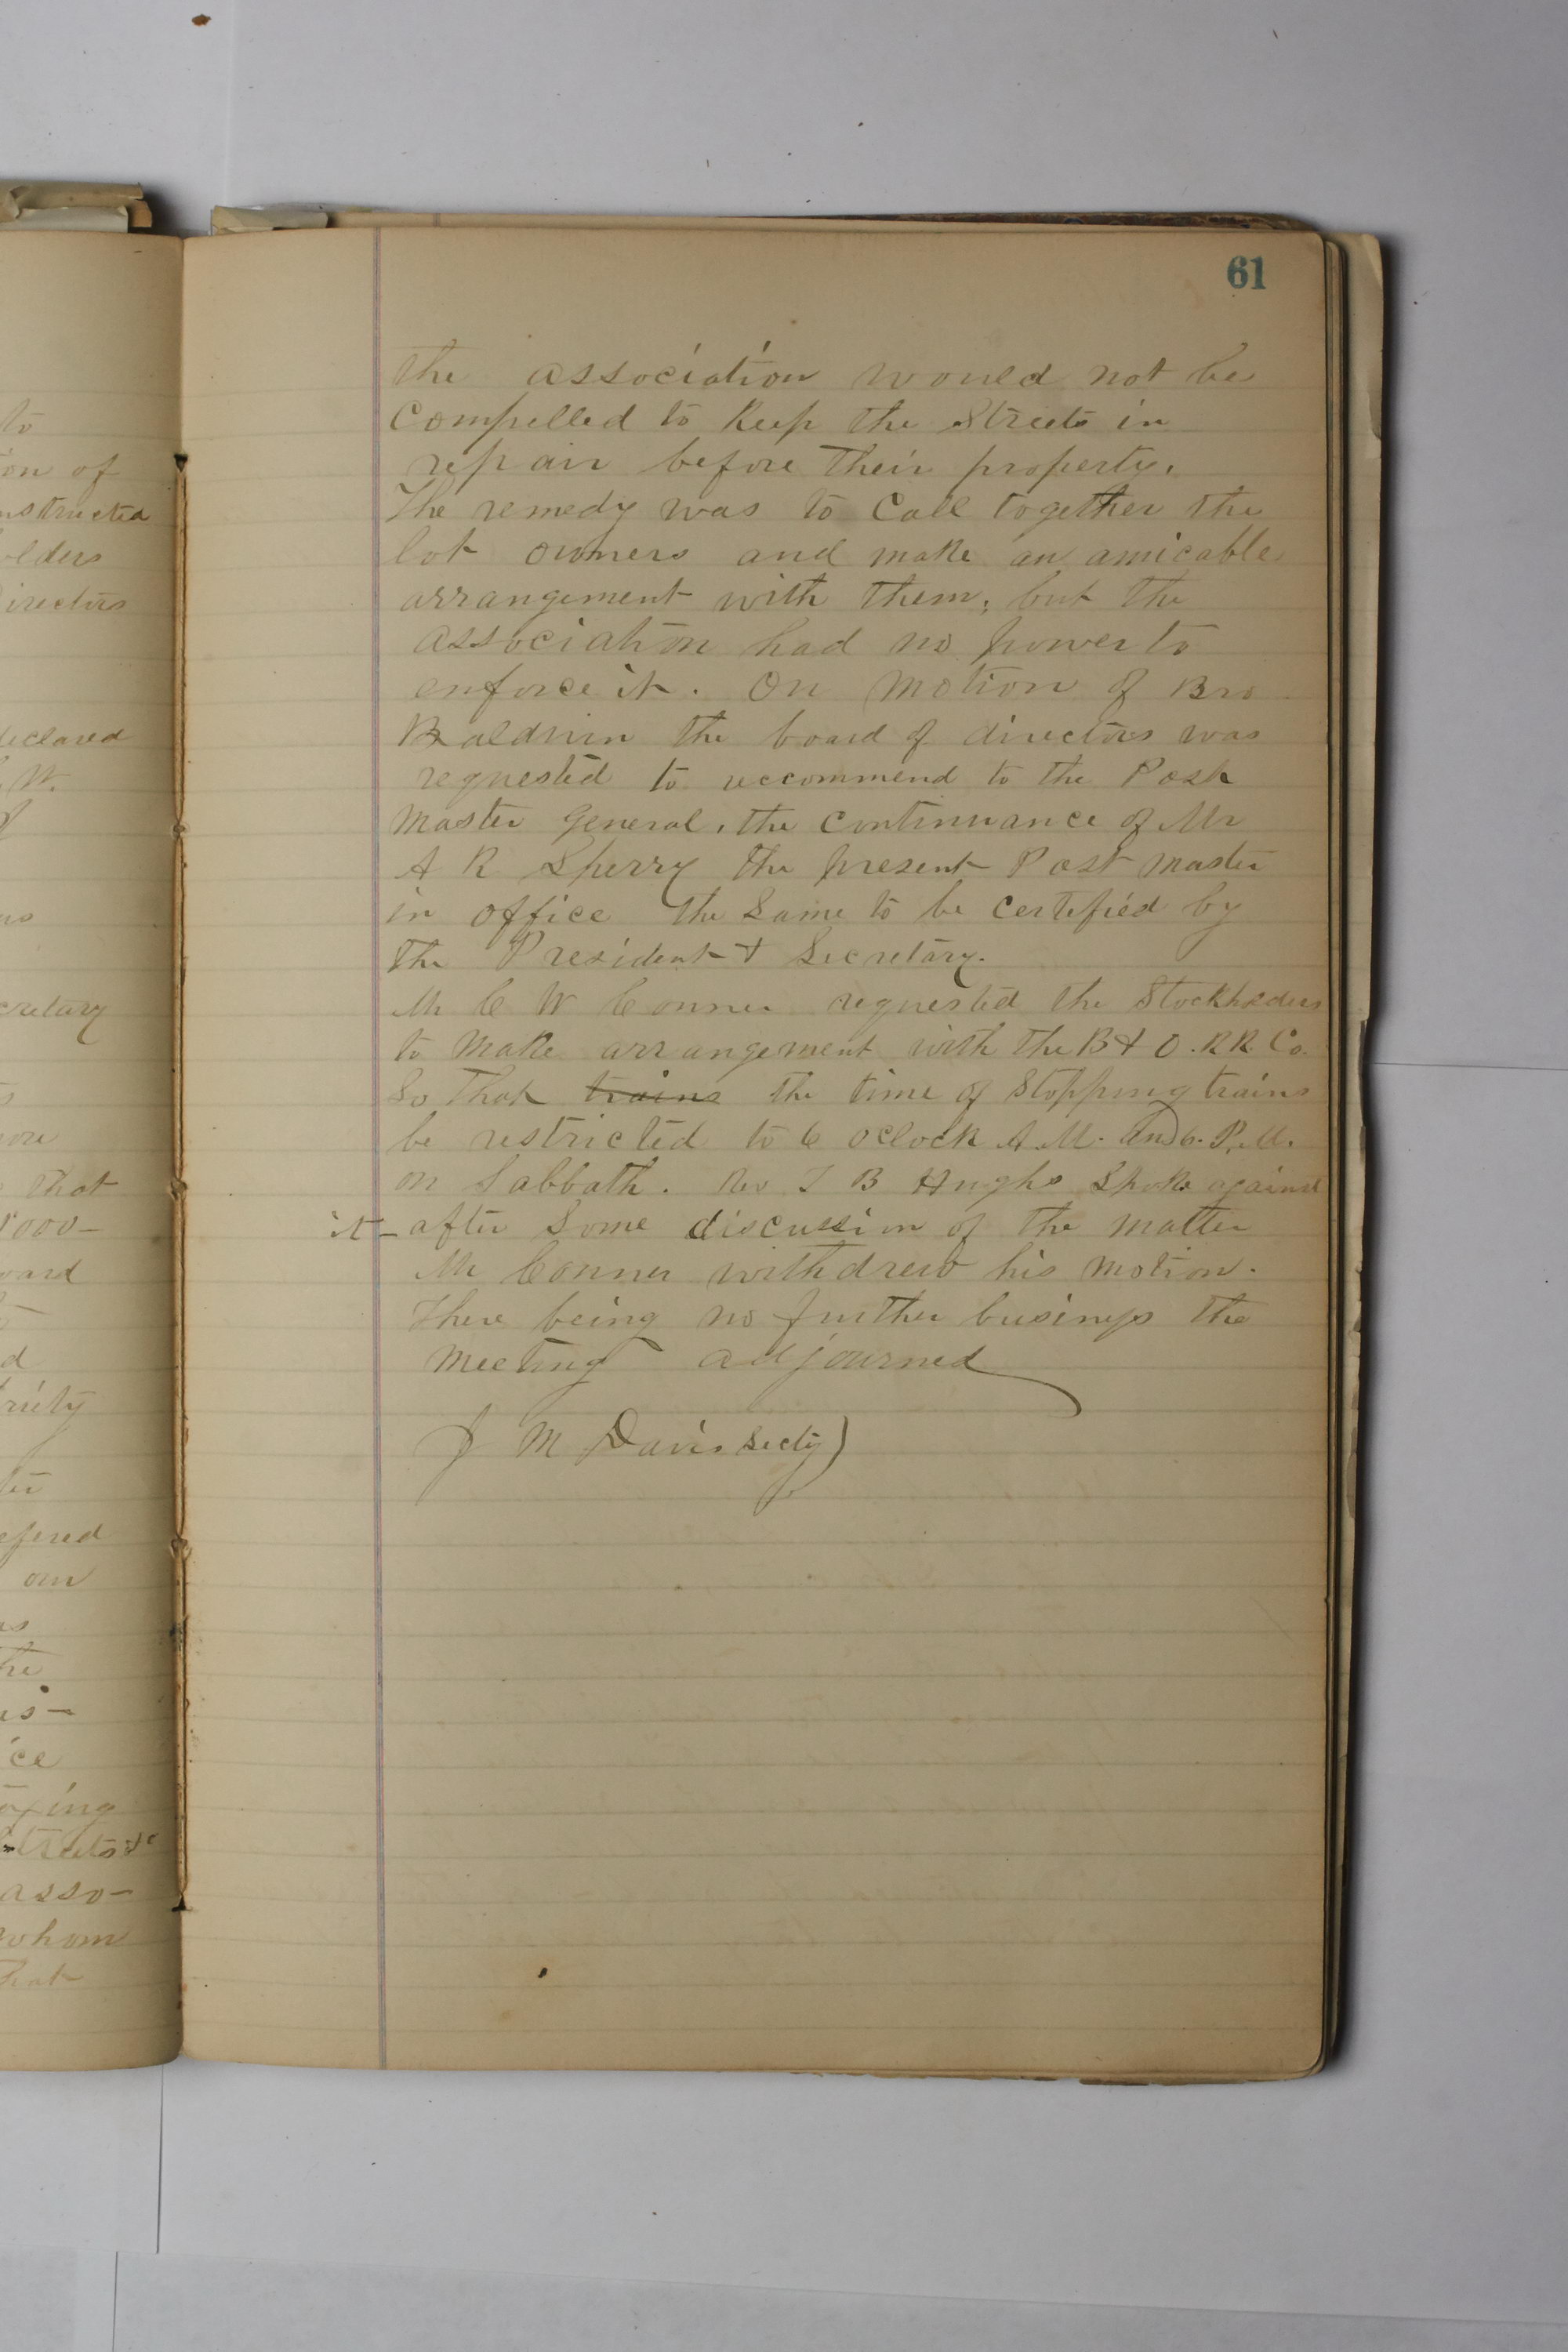 to
ion of
nstructed
olders
irectors
declared
W.
cretary
that
1000-
oard
d
riety
efered
an
the
es-
ice
oxing
streets &c
asso-
whom
that
61
the association would not be
Compelled to Keep the Streets in
repair before their property.
The remedy was to Call together the
lot owners and make an amicable
arrangement with them; but the
association had no power to
enforce it. On motion of Bro
Baldwin the board of directors was
requested to reccommend to the Post
Master General, the Continuance of Mr
A R Sperry the present Post Master
in office the Same to be Certefied by
the President & Secretary.
Mr C W Conner requested the Stockholders
to Make arrangement with the B & O. R R. Co.
So that trains the time of Stopping trains
be restricted to 6 oclock A.M. and 6. P.M.
on Sabbath. Rev T B Hughs Spoke against
it - after Some discussion of the matter
Mr Conner withdrew his motion.
There being no further business the
Meeting adjourned
J M Davis Secty)